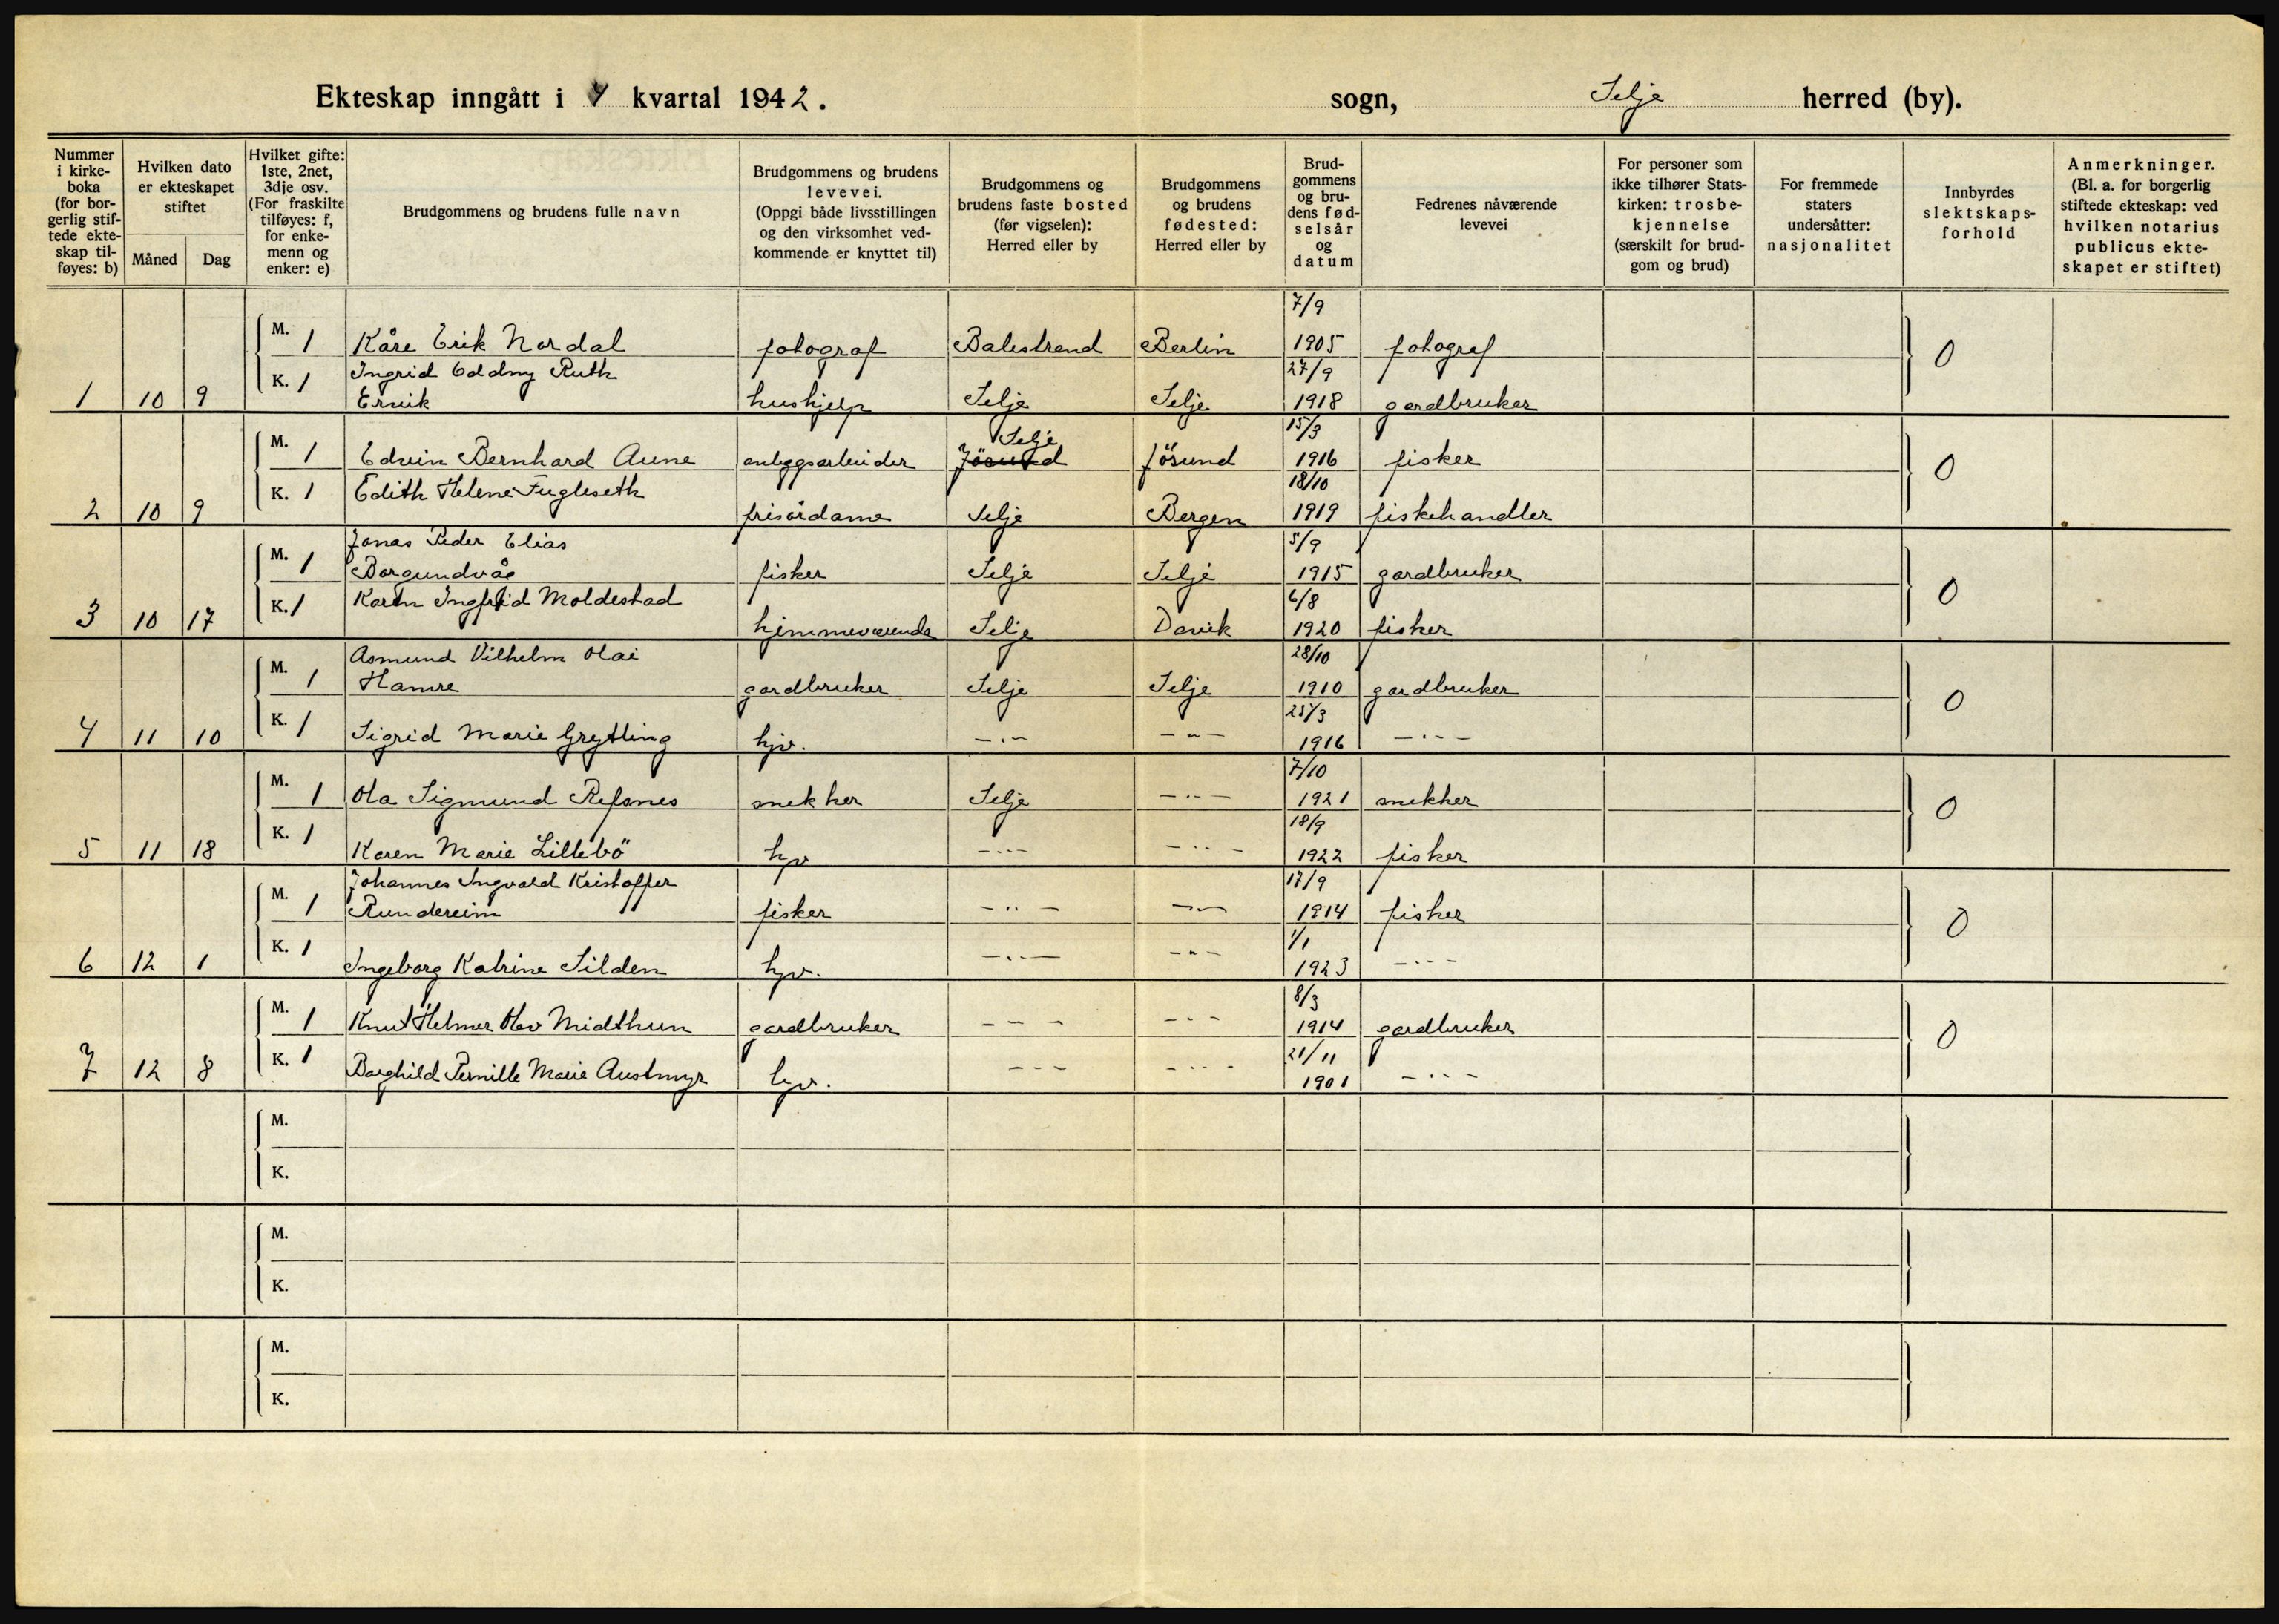 Ekteskap inngått i 4 kvartal 1942. sogn, Selje herred (by).
Nummer i kirke- boka (for bor- gerlig stif- tede ekte- skap til- føyes: b)
Hvilken dato er ekteskapet stiftet
Måned Dag
Hvilket gifte: 1ste, 2net, 3dje osv. (For fraskilte tilføyes: f, for enke- menn og enker: e)
Brudgommens og brudens fulle navn
Brudgommens og brudens levevei. (Oppgi både livsstillingen og den virksomhet ved- kommende er knyttet til)
Brudgommens og brudens faste bosted (før vigselen): Herred eller by
Brudgommens og brudens fødested: Herred eller by
Brud- gommens og bru- dens fød- selsår og datum
Fedrenes nåværende levevei
For personer som ikke tilhører Stats- kirken: trosbe- kjennelse (særskilt for brud- gom og brud)
For fremmede staters undersåtter: nasjonalitet
Innbyrdes slektskaps- forhold
Anmerkninger. (Bl. a. for borgerlig stiftede ekteskap: ved hvilken notarius publicus ekte- skapet er stiftet)
7/9
M. 1 Kåre Erik Nordal fotograf Balestrand Berlin 1905 fotograf 0
Ingrid Oddny Ruth 27/9
1 10 9 K. 1 Ervik hushjelp Selje Selje 1918 gardbruker
Selje 15/3
M. 1 Edvin Bernhard Aune anleggsarbeider Jösund Jösund 1916 fisker 0
K. 1 Edith Helene Fugleseth 18/10
2 10 9 frisördame Selje Bergen 1919 fiskehandler
Jonas Peder Elias 5/9
M. 1 Borgundvåg fisker Selje Selje 1915 gardbruker 0
K. 1 Karen Ingfrid Moldestad 6/8
3 10 17 hjemmeværende Selje Davik 1920 fisker
Asmund Vilhelm Olai 28/10
M. 1 Hamre gardbruker Selje Selje 1910 gardbruker 0
25/3
4 11 10 K. 1 Sigrid Marie Grytting hjv. -"- -"- 1916 -"-
7/10
M. 1 Ola Sigmund Refsnes snekker Selje -"- 1921 snekker 0
18/9
5 11 18 K. 1 Karen Marie Lillebö hjv -"- -"- 1922 fisker
Johannes Ingvald Kristoffer 17/9
M. 1 Rundereim fisker -"- -"- 1914 fisker 0
1/1
6 12 1 K. 1 Ingeborg Katrine Silden hjv. -"- -"- 1923 -"-
8/3
M. 1 Knut Helmer Olav Midthun gardbruker -"- -"- 1914 gardbruker 0
21/11
7 12 8 K. 1 Borghild Pernille Marie Austmyr hjv. -"- -"- 1901 -"-
M.
K.
M.
K.
M.
K.